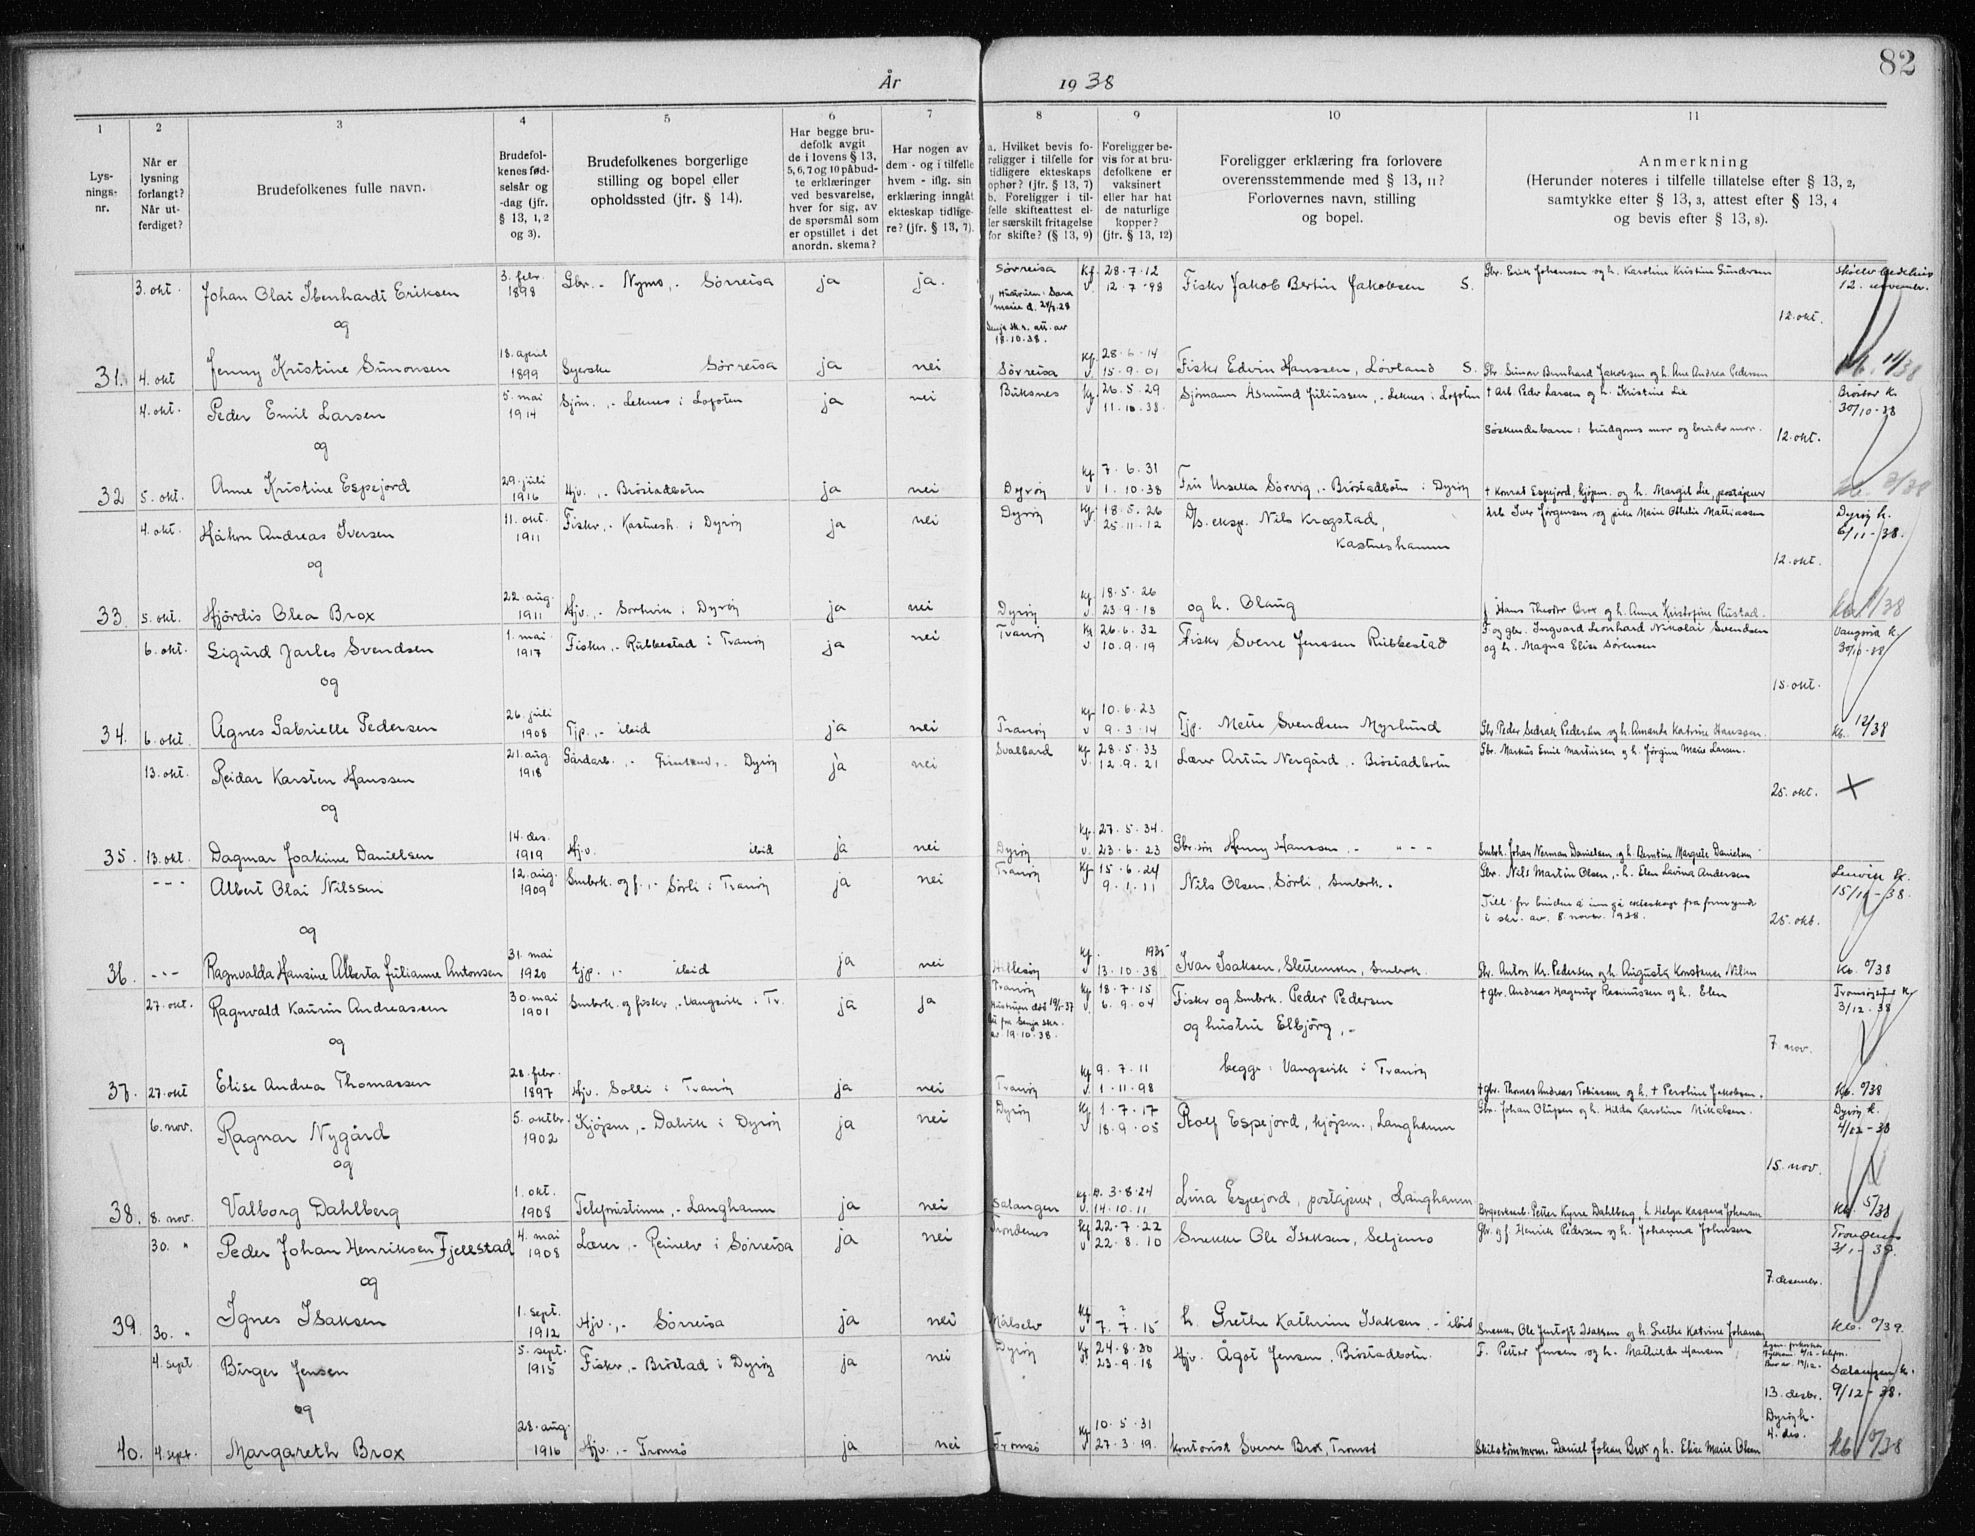 82
År 1938
1 2 3 4 5 6 7 8 9 10 11
Lys-
nings-
nr.
Når er
lysning
forlangt?
Når ut-
ferdiget?
Brudefolkenes fulle navn.
Brudefol-
kenes fød-
selsår og
-dag (jfr.
§ 13, 1, 2
og 3).
Brudefolkenes borgerlige
stilling og bopel eller
opholdssted (jfr. § 14).
Har begge bru-
defolk avgit
de i lovens § 13,
5, 6, 7 og 10 påbud-
te erklæringer
ved besvarelse,
hver for sig, av
de spørsmål som
er opstillet i det
anordn. skema?
Har nogen av
dem - og i tilfelle
hvem - iflg. sin
erklæring inngåt
ekteskap tidlige-
re? (jfr. § 13, 7).
a. Hvilket bevis fo-
religger i tilfelle for
tidligere ekteskaps
ophør? (jfr. § 13, 7)
b. Foreligger i til-
felle skifteattest el-
ler særskilt fritagelse
for skifte? (§ 13, 9)
Foreligger be-
vis for at bru-
defolkene er
vaksinert
eller har hat
de naturlige
kopper?
(jfr. § 13, 12)
Foreligger erklæring fra forlovere
overensstemmende med § 13, 11?
Forlovernes navn, stilling
og bopel.
Anmerkning
(Herunder noteres i tilfelle tillatelse efter § 13, 2,
samtykke efter § 13, 3, attest efter § 13, 4
og bevis efter § 13, 8).
3. okt. Johan Olai Ibenhardt Eriksen 3. febr. 1898 Gbr. - Nymo, - Sørreisa ja ja. Sørreisa Kf. 28-7-12 v. 12-7-98 Fiskr Jakob Bertin Jakobsen S. Gbr. Erik Johansen og h. Karoline Kristine Gundersen 12. november.
18.10.38.
og 12. okt.
31. 4. okt Jenny Kristine Simonsen 18. april 1899 Syerske Sørreisa ja nei Sørreisa Kf. 28-6-14 v. 15-9-01 Fiskr Edvin Hanssen, Løvland S. Gbr. Simon Bernhard Jakobsen og h. Ane Andrea Pedersen Kb. 14/38
4. okt. Peder Emil Larsen 5. mai 1914 Sjøm. ,- Leknes i Lofoten ja nei Buksnes Kf. 26-5-29 v. 11-10-38. Sjømann Asmund Juliussen, - Leknes i Lofoten † Arb. Peder Larsen og h. Kristine Lie 30/10-38
og Søskendebarn: brudgoms mor og bruds mor. 12. okt.
32 5. okt. Anne Kristine Espejord 29. juli 1916 Hjv. ,- Brøstadbotn ja nei Dyrøy Kf 7-6-31 v 1.10.38 Frk Ursella Sørvig, - Brøstadbotn i Dyrøy † Konrad Espejord, kjøpm. og h. Margit Lie, postapner
4. okt. Håkon Andreas Iversen 11. okt. 1911 Fiskr, - Kastnesh. i Dyrøy ja nei Dyrøy Kf 18-5-26 25-11-12 D/s. eksp. Nils Krogstad, Arb Iver Jørgensen og pike Marie Othelie Mattiassen Dyrøy k. 6/11-38.
Kastneshamn
og 12. okt.
33. 5. okt. Hjördis Olea Brox 22. aug. 1911 Hjv. ,- Sørtvik i Dyrøy ja nei Dyrøy Kf 18-5-26 v. 23-9-18 og h. Olaug Hans Theodor Brox og h. Anna Kristofine Rustad.
6. okt. Sigurd Jarles Svendsen 1. mai 1917 Fiskr, - Rubbestad i Tranøy ja nei Tranøy Kf 26-6-32 v 10-9-19 Fiskr Sverre Jenssen Rubbestad F. og gbr. Ingvard Leonhard Nikolai Svendsen 30/10-38
og h. Magna Elise Sørensen
og 15. okt.
34. 6. okt. Agnes Gabrielle Pedersen 26. juli 1908 Tjp. ,- ibid ja nei Tranøy Kf 10-6-23 v 9-3-14 Tjp. Mette Svendsen Myrlund Gbr Peder Sedrak Pedersen og h. Amanda Katrine Hanssen. Kb. 12/38
13. okt. Reidar Karsten Hanssen 21. aug. 1918 Gårdarb. ,- Dyrøy ja nei Svalbard Kf 28-5-33 v. 12-9-21 Lærer Artur Nergård, - Brøstadbotn Gbr. Markus Emil Martinssen og h. Jørgine Marie Larsen.
og 25. okt. X
35. 13. okt. Dagmar Joakine Danielsen 14. des. 1919 Hjv. ibid ja nei Dyrøy Kf. 27-5-34. v. 23-6-23 Gbr. søn Henry Hanssen, - " - " - Småbk. Johan Norman Danielsen og h. Berntine Margrete Danielsen
--- Albert Olai Nilssen 12. aug. 1909 Småbrk. og f. ,- Sørli i Tranøy ja nei Tranøy Kf. 15-6-24 9-1-11 Nils Olsen, Sørli, Småbrk. Gbr. Nils Martin Olsen, - h. Elen Lavina Andersen Lenvik k. 15/11-38.
Till. for bruden å inngå ekteskap fra formynder
i skr. av 8. novbr. 1938.
og 25. okt.
36. --- Ragnvalda Hansine Alberta Julianne Antonsen 31. mai 1920 tjp. ,- ibid ja nei Hillesøy Kf. 1935 v 13-10-38 Ivar Isaksen, Slettemoen, Småbrk. Gbr. Anton Kr. Pedersen og h. Augusta Konstanse Nilsen
27. okt. Ragnvald Kaurin Andreassen 30. mai 1901 Småbrk. og fiskr, - Vangsvik i Tr. ja ja Tranøy Kf 18-7-15 v. 6-9-04 Fiskr og Småbrk. Peder Pedersen † gbr. Andreas Hagerup Rasmussen og h. Elen 3/12-38
av 19.10.38. og hustru Elbjörg, -
og 7. nov.
begge i Vangsvik i Tranøy
37. 27. okt Elise Andrea Thomassen 28. febr. 1897 Hjv. Solli i Tranøy ja nei Tranøy Kf 9-7-11 v. 1-11-98 † gbr. Thomas Andreas Tobiassen og h. † Peroline Jakobsen.
6. nov. Ragnar Nygård 5. oktbr. 1902 Kjøpm, - Dalvik i Dyrøy ja nei Dyrøy Kf 1-7-17 v 18-9-05 Rolf Espejord, kjøpm., Langhamn Gbr. Johan Olufsen og h. Hilda Karoline Nikolaisen. Dyrøy k. 4/12-38
og 15. nov.
38. 8. nov. Valborg Dahlberg 1. okt. 1908 Telefonistinne, - Langhamn ja nei Salangen Kf. 3-8-24 v. 14-10-11 Lina Espejord, postapner, Langhamn Bergverksarb. Petter Kyrre Dahlberg, h Helga Kaspara Johansen Kb. 5/38
30. " Peder Johan Henriksen Fjellstad 4. mai 1908 Lærer, - Reinelv i Sørreisa ja nei Trondenes Kf 22-7-22 v 22-8-10 Snekker Ole Isaksen, Seljemo Gbr. og f. Henrik Pedersen og h. Johanna Johnsen Trondenes 3/1-39.
og 7. desembr.
39. 30. " Ignes Isaksen 1. sept. 1912 Hjv. ,- Sørreisa ja nei Målselv Kf ? v 7-7-15 h. Grethe Kathrin Isaksen, - ibid Snekker Ole Jentoft Isaksen og h. Grethe Katrine Johansen
4. sept. Birger Jensen 5. sept. 1915 Fiskr, - Brøstad i Dyrøy ja nei Dyrøy Kf 24-8-30 23-9-18 Hjv. Ågot Jensen, Brøstadbotn. F. Petter Jensen og h. Mathilde Hansen Salangen k. 9/12-38.
og 13. desbr.
Dyrøy k.
4. des.
40. 4. sept. Margareth Brox 28. aug. 1916 Hjv. ,- Tromsø ja nei Tromsø Kf 10-5-31 v 27-3-19. Kontorist Sverre Brox, Tromsø Daniel Johan Brox og h. Elise Marie Olsen